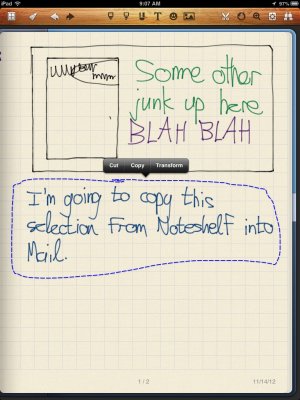 iPad 9:07 AM 97%
Some other
junk up here
BLAH BLAH
Cut Copy Transform
I'm going to copy this
selection from Noteshelf into
Mail.
1 / 2 11/14/12